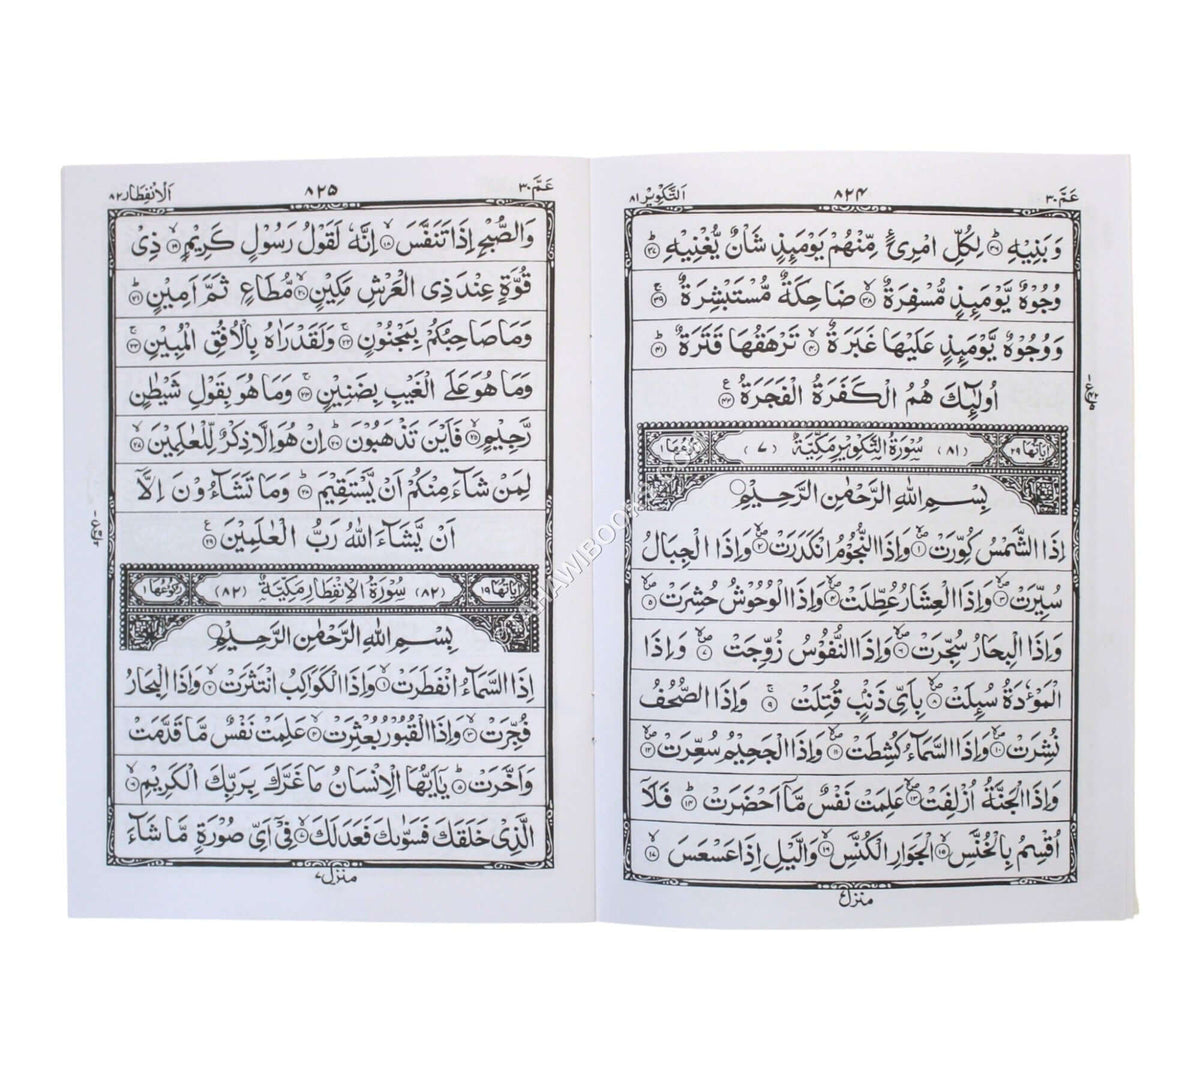 عَمَّ ٣٠
٨٢٤
اَلتَّكْوِيْر ٨١
وَبَنِيْهِ ﴿٣٦﴾ لِكُلِّ امْرِئٍ مِّنْهُمْ يَوْمَئِذٍ شَاْنٌ يُّغْنِيْهِ ﴿٣٧﴾
وُجُوْهٌ يَّوْمَئِذٍ مُّسْفِرَةٌ ﴿٣٨﴾ ضَاحِكَةٌ مُّسْتَبْشِرَةٌ ﴿٣٩﴾
وَوُجُوْهٌ يَّوْمَئِذٍ عَلَيْهَا غَبَرَةٌ ﴿٤٠﴾ تَرْهَقُهَا قَتَرَةٌ ﴿٤١﴾
اُولٰٓئِكَ هُمُ الْكَفَرَةُ الْفَجَرَةُ ﴿٤٢﴾
اٰيَاتُهَا ٢٩ (٨١) سُوْرَةُ التَّكْوِيْرِ مَكِّيَّةٌ (٧) رُكُوْعُهَا ١
بِسْمِ اللّٰهِ الرَّحْمٰنِ الرَّحِيْمِ
اِذَا الشَّمْسُ كُوِّرَتْ ﴿١﴾ وَاِذَا النُّجُوْمُ انْكَدَرَتْ ﴿٢﴾ وَاِذَا الْجِبَالُ
سُيِّرَتْ ﴿٣﴾ وَاِذَا الْعِشَارُ عُطِّلَتْ ﴿٤﴾ وَاِذَا الْوُحُوْشُ حُشِرَتْ ﴿٥﴾
وَاِذَا الْبِحَارُ سُجِّرَتْ ﴿٦﴾ وَاِذَا النُّفُوْسُ زُوِّجَتْ ﴿٧﴾ وَاِذَا
الْمَوْءٗدَةُ سُئِلَتْ ﴿٨﴾ بِاَيِّ ذَنْۢبٍ قُتِلَتْ ﴿٩﴾ وَاِذَا الصُّحُفُ
نُشِرَتْ ﴿١٠﴾ وَاِذَا السَّمَآءُ كُشِطَتْ ﴿١١﴾ وَاِذَا الْجَحِيْمُ سُعِّرَتْ ﴿١٢﴾
وَاِذَا الْجَنَّةُ اُزْلِفَتْ ﴿١٣﴾ عَلِمَتْ نَفْسٌ مَّآ اَحْضَرَتْ ﴿١٤﴾ فَلَآ
اُقْسِمُ بِالْخُنَّسِ ﴿١٥﴾ الْجَوَارِ الْكُنَّسِ ﴿١٦﴾ وَالَّيْلِ اِذَا عَسْعَسَ ﴿١٧﴾
منزل
عَمَّ ٣٠
٨٢٥
اَلْاِنْفِطَار ٨٢
وَالصُّبْحِ اِذَا تَنَفَّسَ ﴿١٨﴾ اِنَّهٗ لَقَوْلُ رَسُوْلٍ كَرِيْمٍ ﴿١٩﴾ ذِيْ
قُوَّةٍ عِنْدَ ذِي الْعَرْشِ مَكِيْنٍ ﴿٢٠﴾ مُّطَاعٍ ثَمَّ اَمِيْنٍ ﴿٢١﴾
وَمَا صَاحِبُكُمْ بِمَجْنُوْنٍ ﴿٢٢﴾ وَلَقَدْ رَاٰهُ بِالْاُفُقِ الْمُبِيْنِ ﴿٢٣﴾
وَمَا هُوَ عَلَى الْغَيْبِ بِضَنِيْنٍ ﴿٢٤﴾ وَمَا هُوَ بِقَوْلِ شَيْطٰنٍ
رَّجِيْمٍ ﴿٢٥﴾ فَاَيْنَ تَذْهَبُوْنَ ﴿٢٦﴾ اِنْ هُوَ اِلَّا ذِكْرٌ لِّلْعٰلَمِيْنَ ﴿٢٧﴾
لِمَنْ شَآءَ مِنْكُمْ اَنْ يَّسْتَقِيْمَ ﴿٢٨﴾ وَمَا تَشَآءُوْنَ اِلَّآ
اَنْ يَّشَآءَ اللّٰهُ رَبُّ الْعٰلَمِيْنَ ﴿٢٩﴾
اٰيَاتُهَا ١٩ (٨٢) سُوْرَةُ الْاِنْفِطَارِ مَكِّيَّةٌ (٨٢) رُكُوْعُهَا ١
بِسْمِ اللّٰهِ الرَّحْمٰنِ الرَّحِيْمِ
اِذَا السَّمَآءُ انْفَطَرَتْ ﴿١﴾ وَاِذَا الْكَوَاكِبُ انْتَثَرَتْ ﴿٢﴾ وَاِذَا الْبِحَارُ
فُجِّرَتْ ﴿٣﴾ وَاِذَا الْقُبُوْرُ بُعْثِرَتْ ﴿٤﴾ عَلِمَتْ نَفْسٌ مَّا قَدَّمَتْ
وَاَخَّرَتْ ﴿٥﴾ يٰٓاَيُّهَا الْاِنْسَانُ مَا غَرَّكَ بِرَبِّكَ الْكَرِيْمِ ﴿٦﴾
الَّذِيْ خَلَقَكَ فَسَوّٰىكَ فَعَدَلَكَ ﴿٧﴾ فِيْٓ اَيِّ صُوْرَةٍ مَّا شَآءَ
منزل ٧